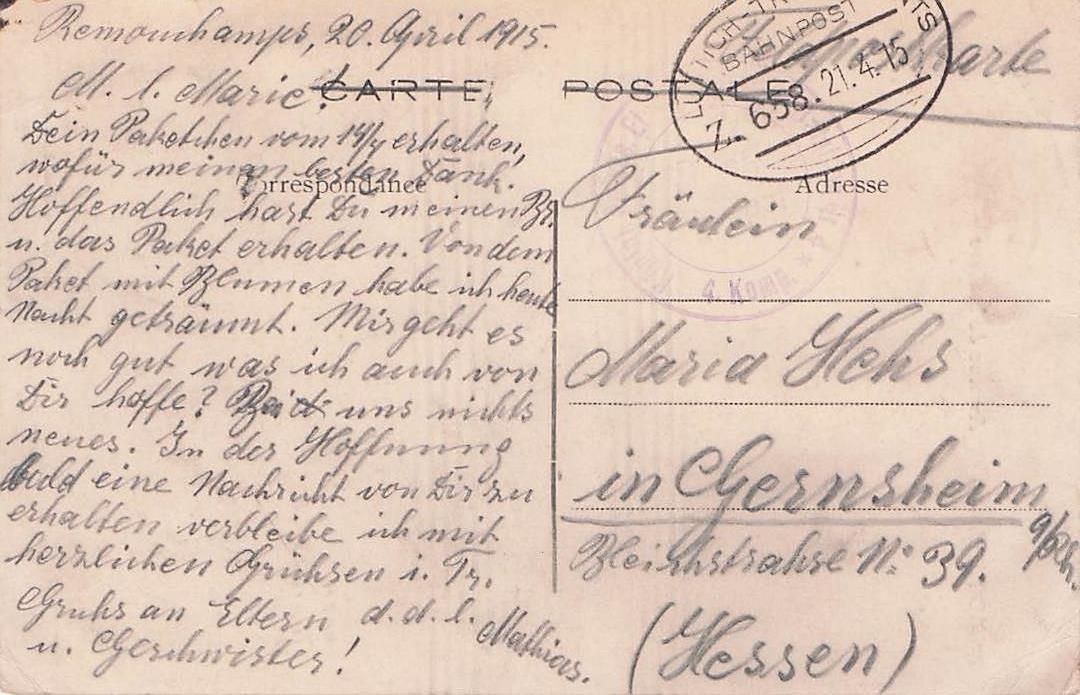 Remouchamps, 20. April 1915.
M. l. Marie!
CARTE POSTALE
Dein Paketchen vom 14/4 erhalten,
wofür meinen besten Dank.
Correspondance
Hoffendlich hast Du meinen Br.
u. das Paket erhalten. Von dem
Paket mit Blumen habe ich heute
Nacht geträumt. Mir geht es
noch gut was ich auch von
Dir hoffe? Bei uns nichts
neues. In der Hoffnung
bald eine Nachricht von Dir zu
erhalten verbleibe ich mit
herzlichen Grühsen i. Tr.
Gruhs an Eltern d. d. l.
u. Geschwister! Mathias.
Feldpostkarte
BAHNPOST
Z. 658. 21.4.15
Adresse
4. Komp.
Fräulein
Maria Hehs
in Gernsheim
a/Rh.
Bleichstrahse No. 39.
(Hessen)